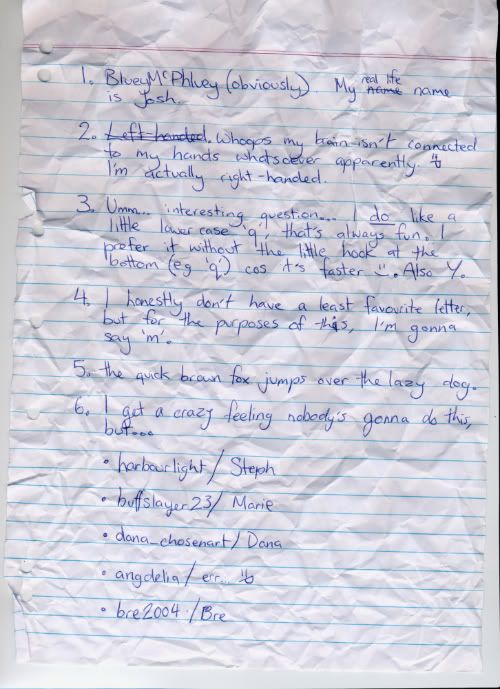 1. BlueyMcPhluey (obviously) My real life name name
is Josh.
2. Left-handed. Whoops my brain isn't connected
to my hands whatsoever apparently.
I'm actually right-handed.
3. Umm... interesting question.... I do like a
little lowercase 'q', that's always fun. I
prefer it without the little hook at the
bottom (eg 'q') cos it's faster :). Also Y.
4. I honestly don't have a least favourite letter,
but for the purposes of this, I'm gonna
say 'm'.
5. the quick brown fox jumps over the lazy dog.
6. I get a crazy feeling nobody's gonna do this,
but....
• harbourlight/ Steph
• buffslayer23/ Marie
• dana_chosenart/ Dana
• angdelia/ err...
• bre2004 /Bre